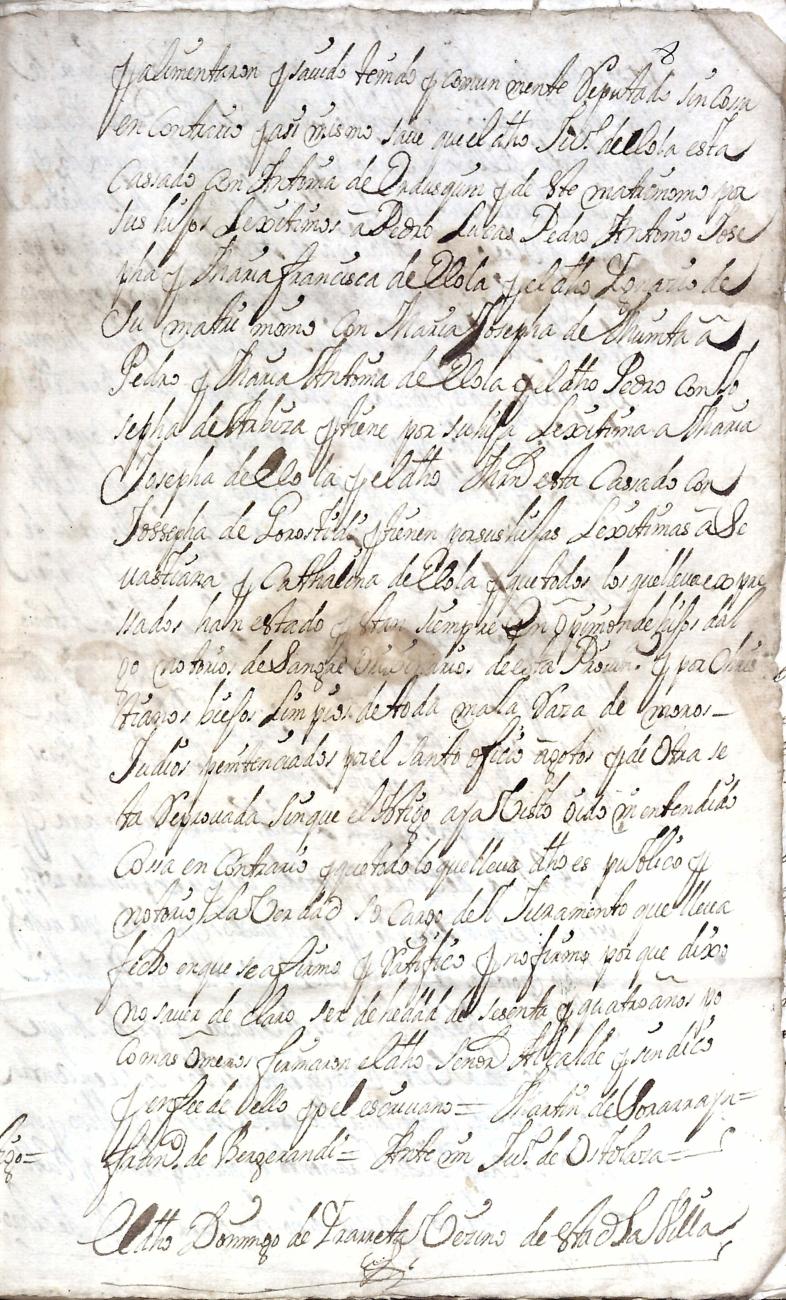 8
y alimentaron y havido tenido y comun mente Reputado sin cosa
en contrario y asi mismo save que el dho Ju.º de Olola esta
Cassado con Antonia de y de este matrimonio por
sus hijos Lexitimos a Pedro Lucas Pedro Antonio Jose
pha y Maria francisca de Olola y el dho Ignacio de
Su matrimonio con Maria Josepha de Munita a
Pedro y Maria Antonia de Olola y el dho Pedro con Jo
sepha de Arbiza y tiene por su hija Lexitima a Maria
Josepha de Olola y el dho esta Cassado con
Jossepha de Gorostidi y tienen por sus hijas Lexitimas a Se
vastiana y Cathalina de Olola y que todos los que lleva expre
ssados han estado y estan siempre en opinion de hijos dal
go notorios de Sangre desta Provin.ª y por Chris
tianos biejos limpios de toda mala Raza de moros
Judios penitenciados por el santo oficio agotos y de otra se
ta Reprovada sin que el testigo aya Visto oido ni entendido
Cossa en contrario y que todo lo que lleva dho es publico y
notorio y la Verdad so cargo del Juramento que lleva
fecho en que se afirmo y Ratifico y no firmo por que dixo
no saver declaro ser de hedad de sesenta y quatro años po
co mas o menos firmaron el dho Señor Alcalde y sindico
y en fee de ello yo el escrivano = Martin de Sorarrayn =
fran.co de Berzerandi = Ante mi Ju.º de Ostolaza =
El dho Domingo de Yrarreta Vecino de esta dha Villa